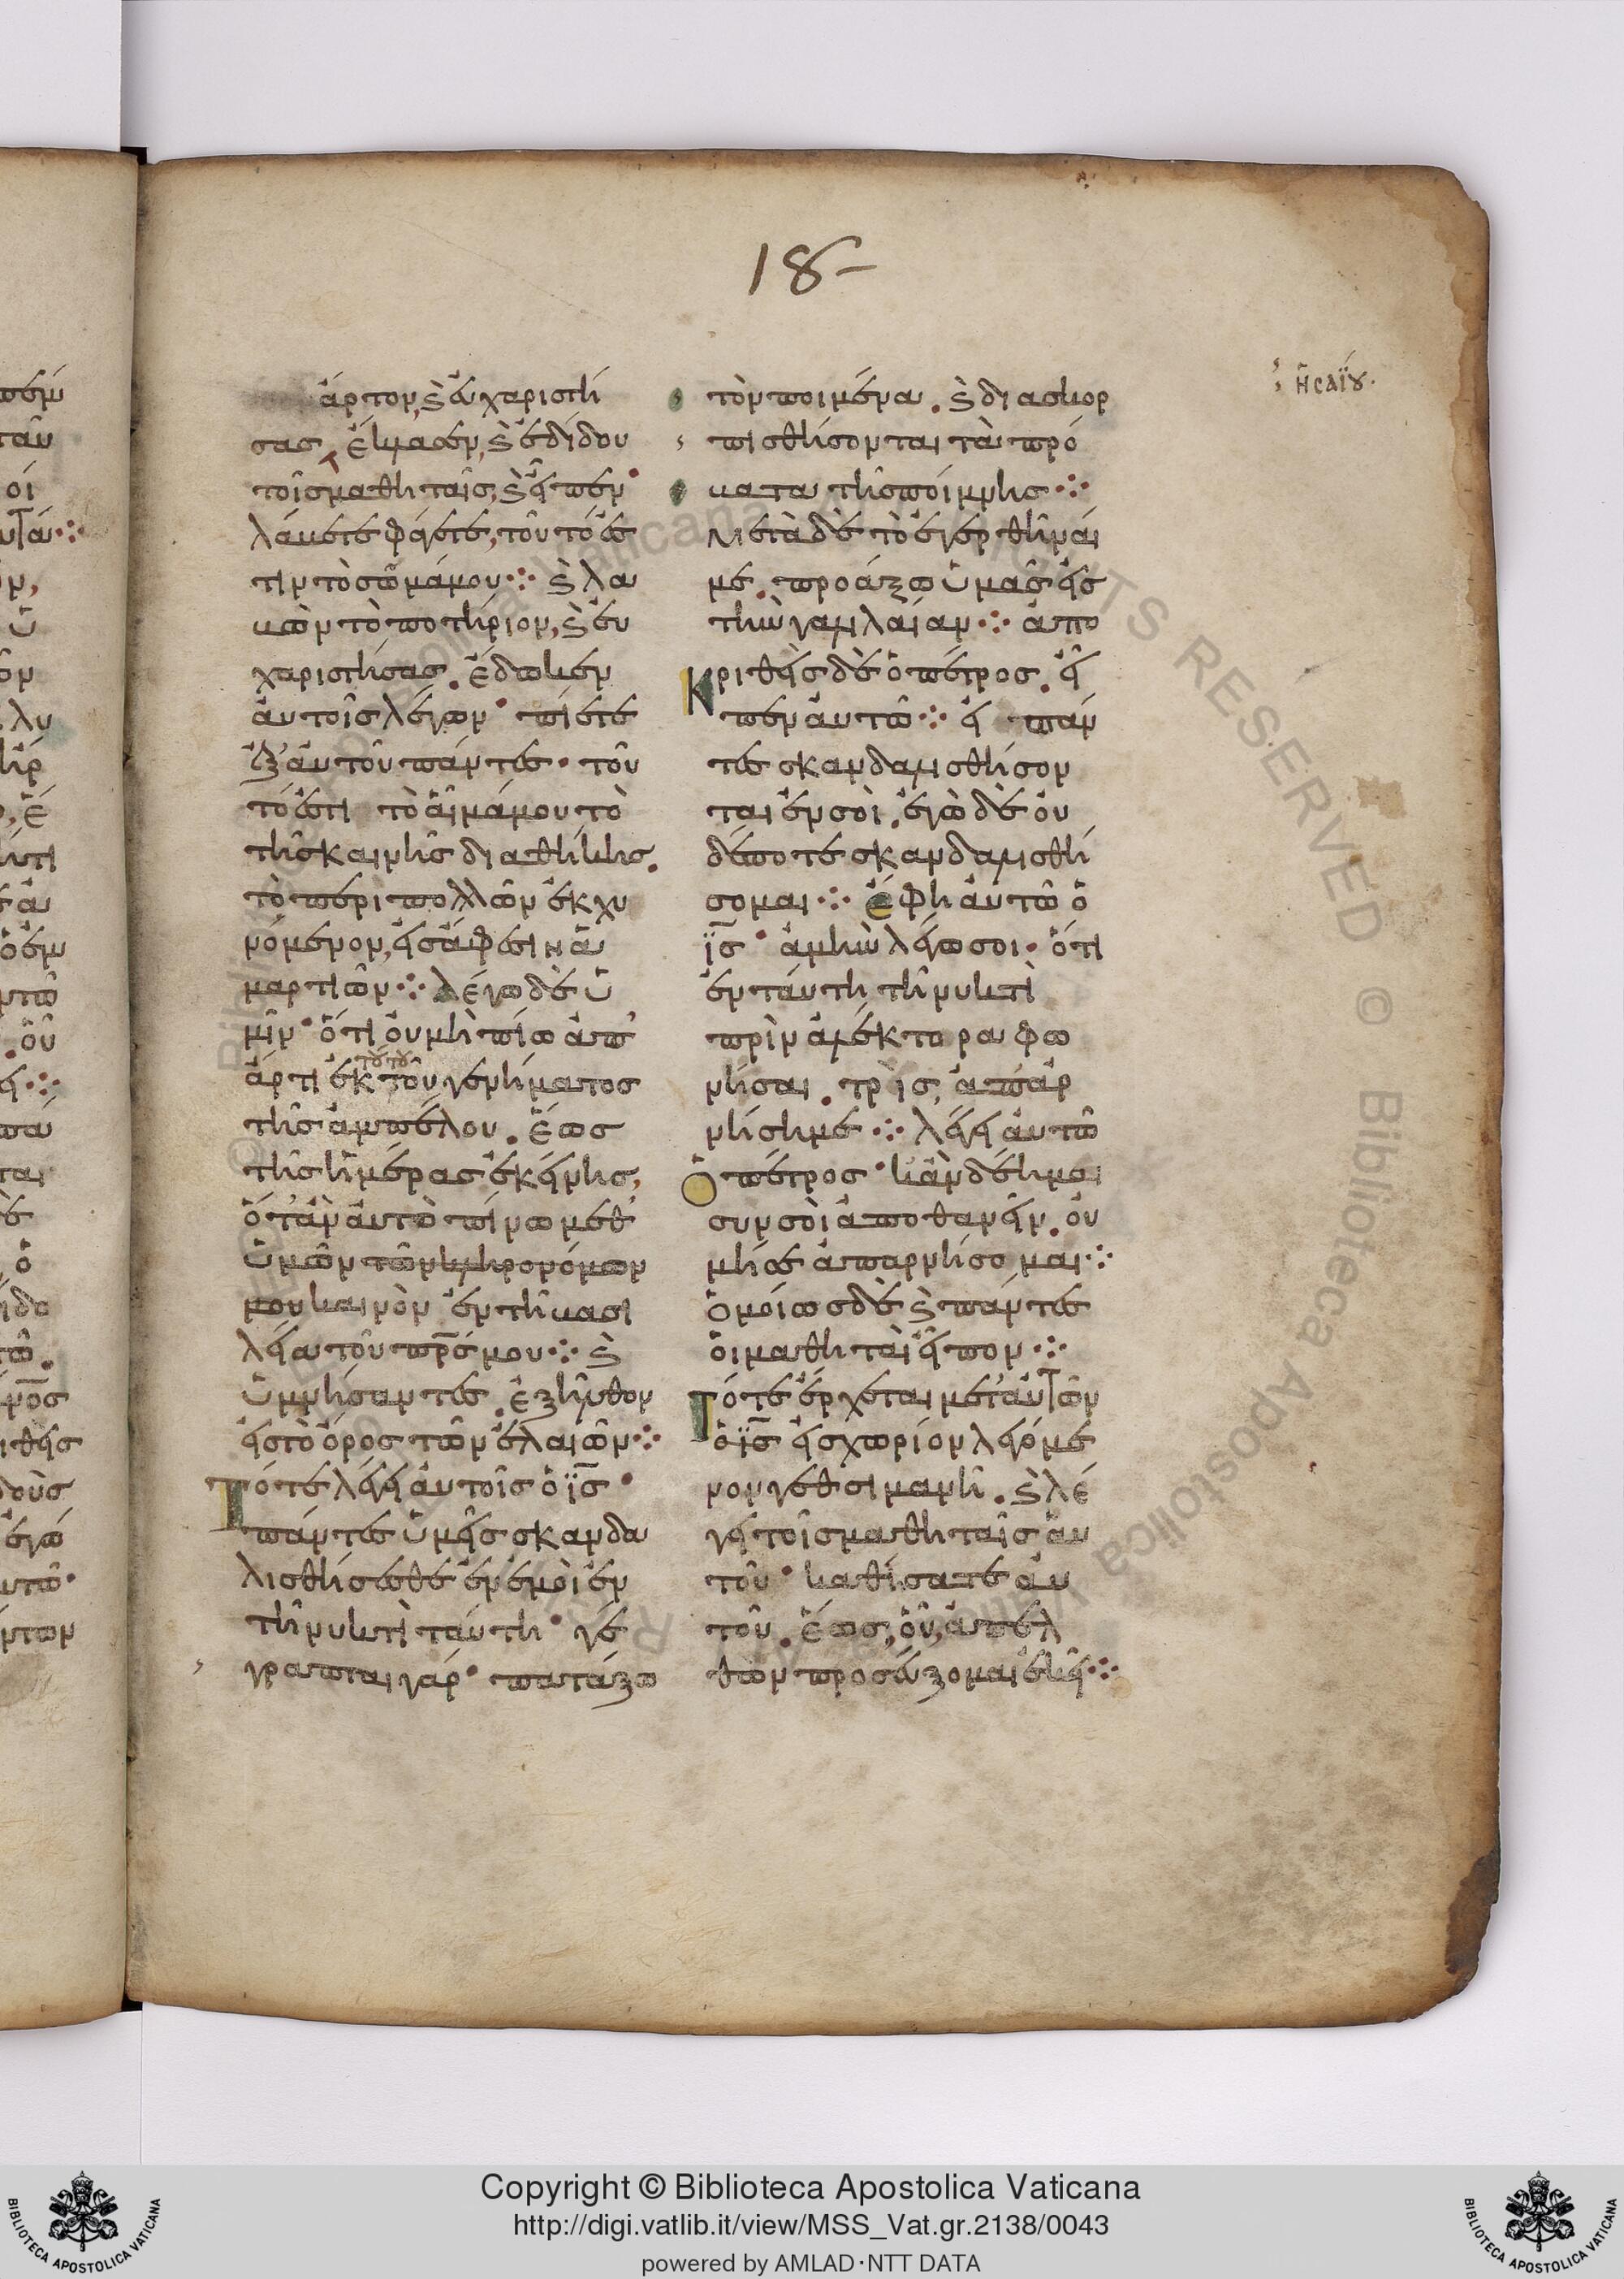 18
ἄρτον, καὶ εὐχαριστή
σας, ἔκλασεν, καὶ ἐδίδου
τοῖς μαθηταῖς, καὶ εἶπεν·
λάβετε φάγετε, τοῦτό ἐσ
τιν τὸ σῶμά μου ⁘ καὶ λα
βὼν τὸ ποτήριον, καὶ εὐ
χαριστήσας. ἔδωκεν
αὐτοῖς λέγων· πίετε
ἐξ αὐτοῦ πάντες· τοῦ
τό ἐστι τὸ αἷμά μου τὸ
τῆς καινῆς διαθήκης.
τὸ περὶ πολλῶν ἐκχυ
νόμενον, εἰς ἄφεσιν ἁ
μαρτιῶν ⁘ λέγω δὲ ὑ
μῖν· ὅτι οὐ μὴ πίω ἀπ'
τούτου
ἄρτι ἐκ τοῦ γενήματος
τῆς ἀμπέλου. ἕως
τῆς ἡμέρας ἐκείνης,
ὅτ' ἂν αὐτὸ πίνω μεθ'
ὑμῶν τῶν κληρονόμων
μου καινὸν ἐν τῇ βασι
λεία τοῦ πρς μου ⁘ καὶ
ὑμνήσαντες. ἐξῆλθον
εἰς τὸ ὄρος τῶν ἐλαιῶν ⁘
Τότε λέγει αὐτοῖς ὁ ις·
πάντες ὑμεῖς σκανδα
λισθήσεσθε ἐν ἐμοὶ ἐν
τῇ νυκτὶ ταύτη· γέ
γραπται γάρ· πατάξω
τὸν ποιμένα. καὶ διασκορ
πισθήσονται τὰ πρό
βατα τῆς ποίμνης ⁘
Μετὰ δὲ τὸ ἐγερθῆναί
με. προάξω ὑμᾶς εἰς
τὴν γαλιλαίαν ⁘ ἀπο
Κριθεὶς δὲ ὁ πέτρος. εἶ
πεν αὐτῶ ⁘ εἰ πάν
τες σκανδαλισθήσον
ται ἐν σοὶ. ἐγὼ δὲ οὐ
δέποτε σκανδαλισθή
σομαι ⁘ ἔφη αὐτῶ ὁ
ις· ἀμὴν λέγω σοι· ὅτι
ἐν ταύτη τῇ νυκτὶ
πρὶν ἀλέκτορα φω
νῆσαι. τρὶς, ἀπαρ
νήσημε ⁘ λέγει αὐτῶ
Ὁ πέτρος· κἂν δέη με
συν σοὶ ἀποθανεῖν. οὐ
μή σε ἀπαρνήσομαι ⁘
Ὁμοίως δὲ καὶ πάντες
οἱ μαθηταὶ εἶπον ⁘
Τότε ἔρχεται μετ' αὐτῶν
ὁ ις εἰς χωρίον λεγόμε
νον γεθσιμανῆ. καὶ λέ
γει τοῖς μαθηταῖς αὐ
τοῦ· καθίσατε αὐ
τοῦ. ἕως, οὗ, ἀπελ
θων προσεύξομαι ἐκεῖ ⁘
ἠσαΐου.
Copyright © Biblioteca Apostolica Vaticana
http://digi.vatlib.it/view/MSS_Vat.gr.2138/0043
powered by AMLAD·NTT DATA
BIBLIOTECA APOSTOLICA VATICANA
BIBLIOTECA APOSTOLICA VATICANA